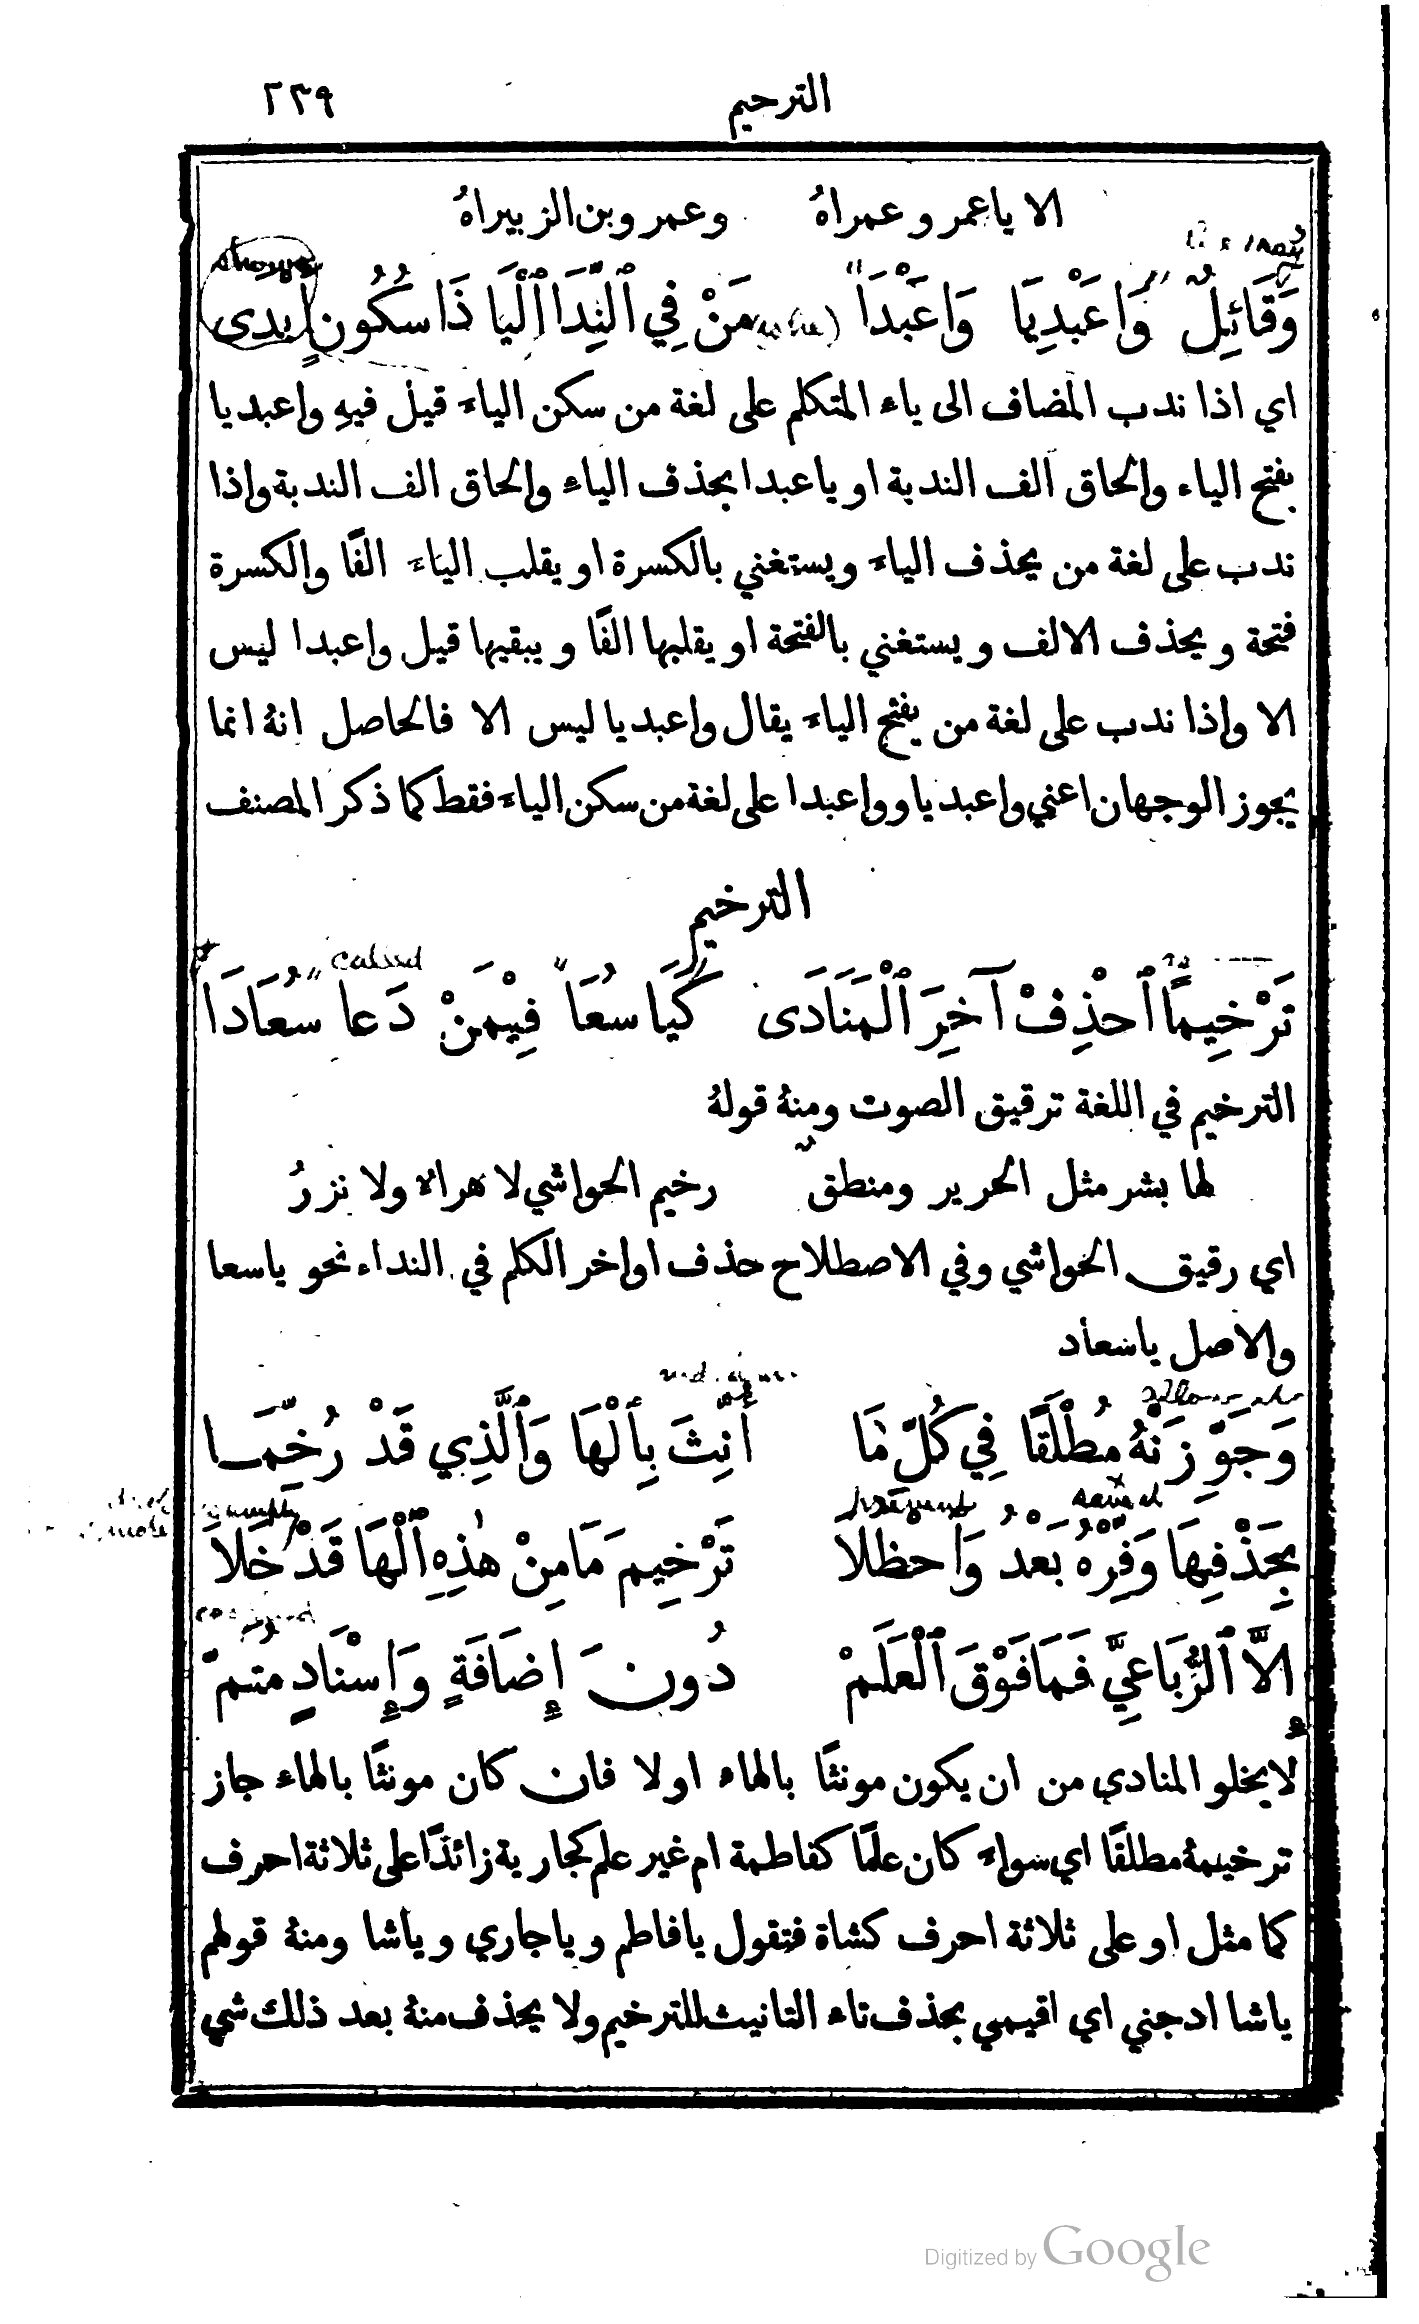 الترحيم ٢٣٩
الا ياعمر و عمراهُ وعمر وبن الزبيراهُ
وَقَائِلٌ وَاعَبْدِيَا وَاعَبْدَا مَنْ فِي ٱلنِّدَا ٱلْيَا ذَا سُكُونٍ ابدى
shows
اي اذا ندب المضاف الى ياء المتكلم على لغة من سكن الياءَ قيل فيهِ واعبديا
بفتح الياء والحاق الف الندبة او ياعبدا بحذف الياءِ والحاق الف الندبة واذا
ندب على لغة من يحذف الياءَ ويستغني بالكسرة او يقلب الياءَ الفًا والكسرة
فتحة ويحذف الالف ويستغني بالفتحة او يقلبها الفًا ويبقيها قيل واعبدا ليس
الا واذا ندب على لغة من يفتح الياءَ يقال واعبديا ليس الا فالحاصل انهُ انما
يجوز الوجهان اعني واعبديا وواعبدا على لغة من سكن الياءَ فقط كما ذكر المصنف
الترخيم
called
تَرْخِيمًا ٱحْذِفْ آخِرَ ٱلْمَنَادَى كَيَا سُعَا فِيْمَنْ دَعا سُعَادَا
الترخيم في اللغة ترقيق الصوت ومنهُ قولهُ
لها بشر مثل الحرير ومنطقٌ رخيم الحواشي لا هراءٌ ولا نزرُ
اي رقيق الحواشي وفي الاصطلاح حذف اواخر الكلم في النداء نحو ياسعا
والاصل ياسعاد
وَجَوِّزَنْهُ مُطْلَقًا فِي كُلِّ مَا أُنِّثَ بِٱلْهَا وَٱلَّذِي قَدْ رُخِّمَا
بِحَذْفِهَا وَفِّرْهُ بَعْدُ وَاحظلا تَرْخِيمَ مَا مِنْ هٰذِهِ ٱلْهَا قَدْ خَلاَ
الاَّ ٱلرُّبَاعِيَّ فَمَا فَوْقَ ٱلْعَلَمْ دُونَ إِضَافَةٍ وَإِسْنَادٍ مُتَمّْ
لايخلو المنادى من ان يكون مونثًا بالهاء او لا فان كان مونثًا بالهاء جاز
ترخيمهُ مطلقًا اي سواءَ كان علمًا كفاطمة ام غير علم كجارية زائدًا على ثلاثة احرف
كما مثل او على ثلاثة احرف كشاة فتقول يافاطم وياجاري وياشا ومنهُ قولهم
ياشا ادجني اي اقيمي بحذف تاء التانيث للترخيم ولا يحذف منهُ بعد ذلك شي
Digitized by Google